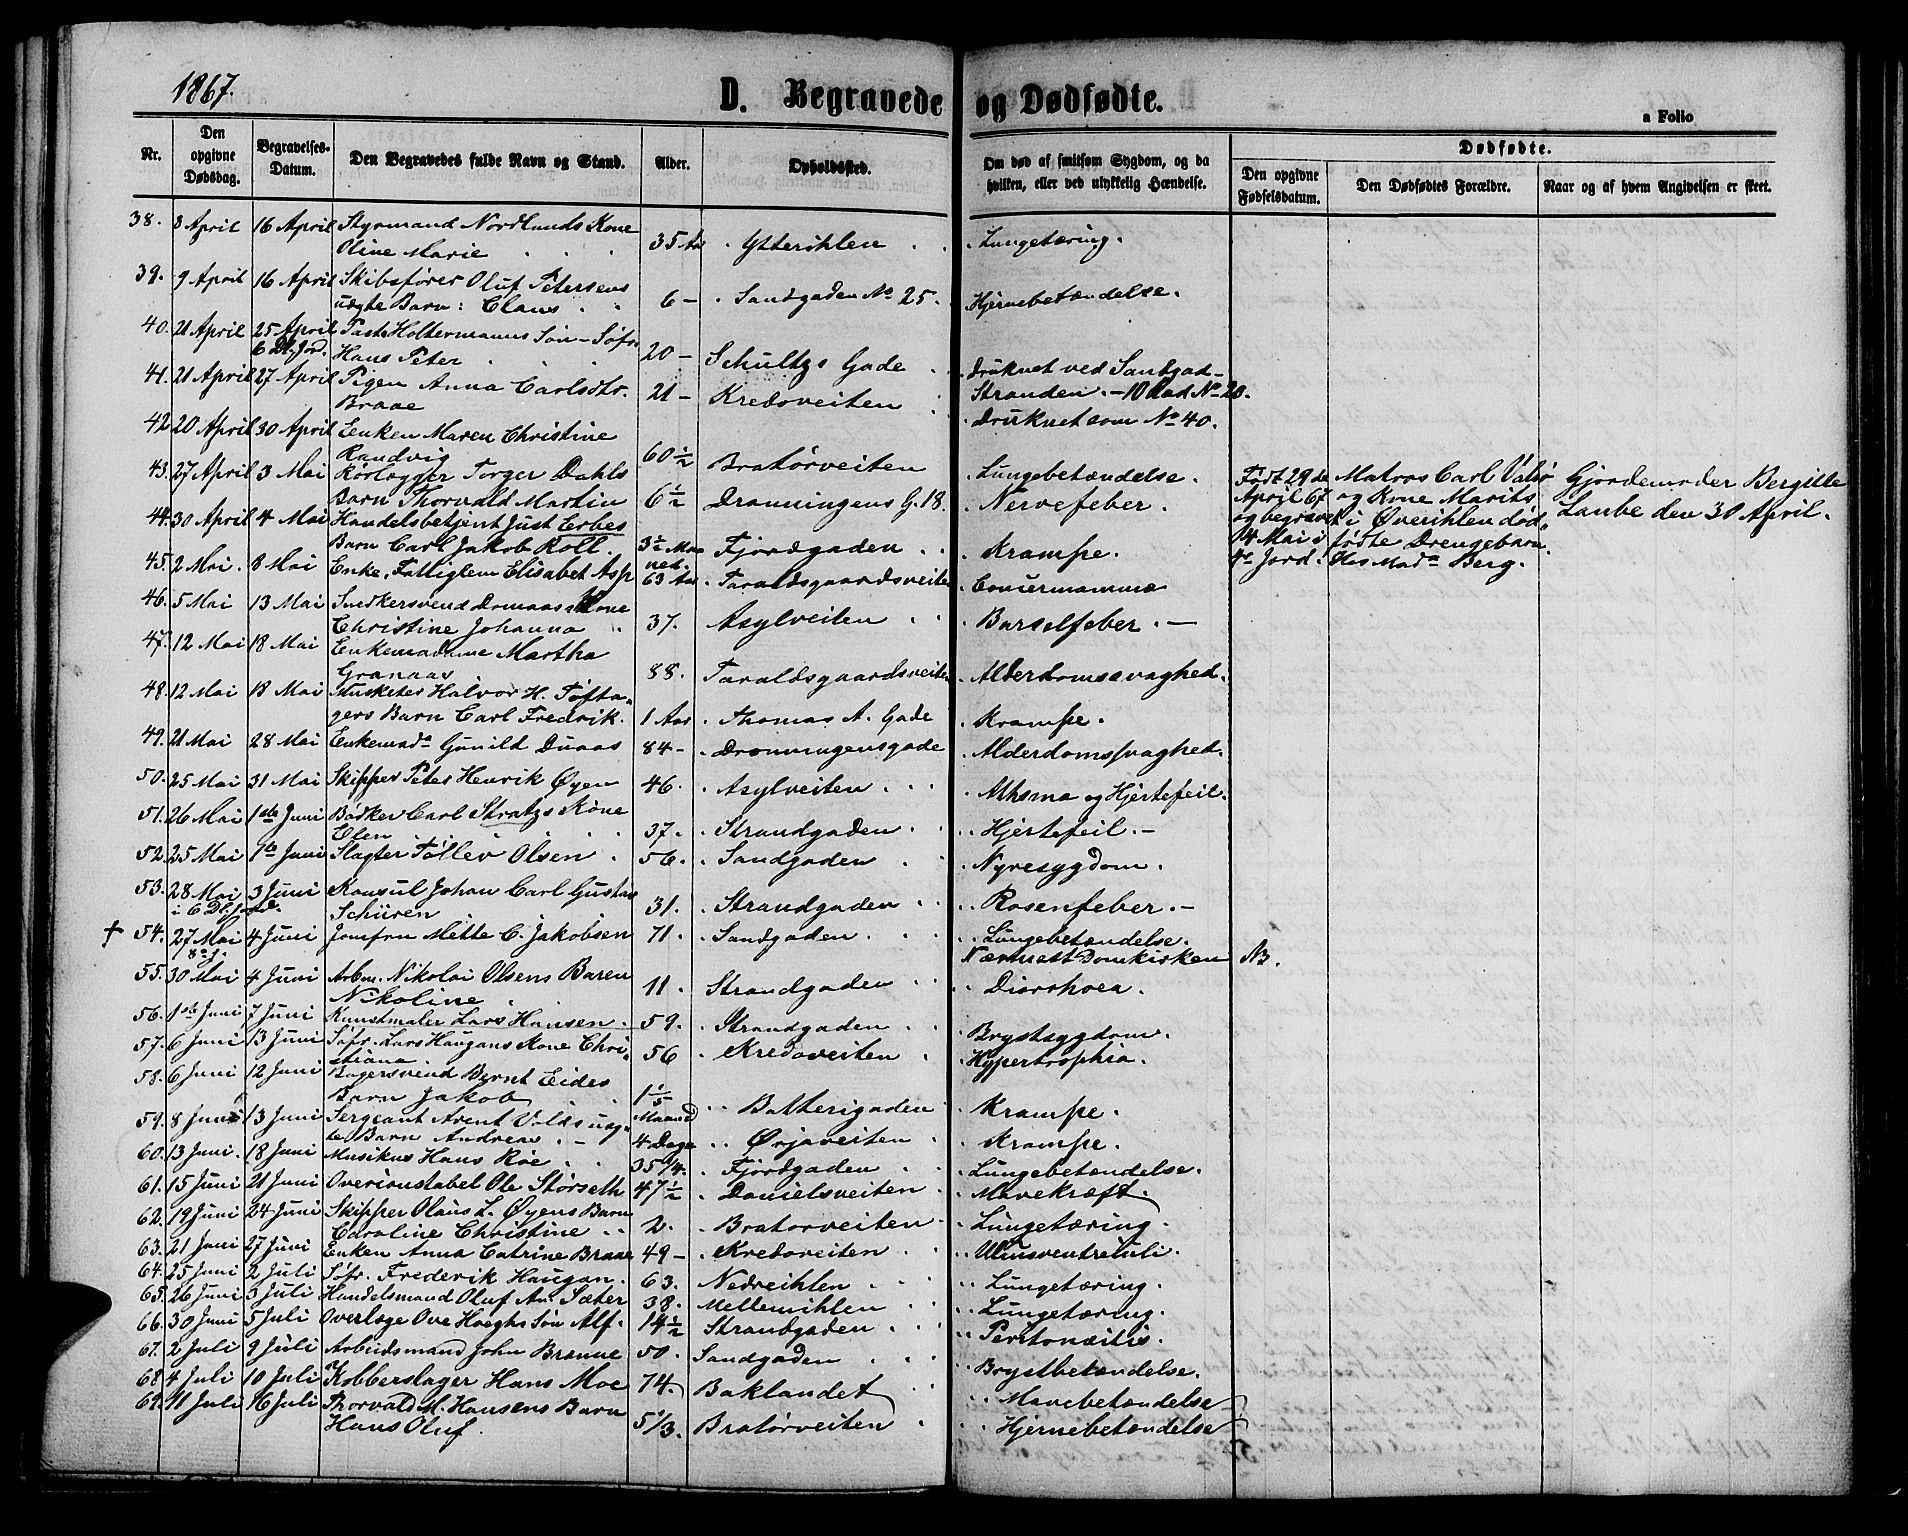 1867.
D. Begravede og Dødfødte.
a Folio
Nr.
Den opgivne Dødsdag.
Begravelses-Datum.
Den Begravedes fulde Navn og Stand.
Alder.
Opholdssted.
Om død af smitsom Sygdom, og da hvilken, eller ved ulykkelig Hændelse.
Dødfødte.
Den opgivne Fødselsdatum.
Den Dødfødtes Forældre.
Naar og af hvem Angivelsen er skeet.
38. 8 April 16 April Styrmand Nordlunds Kone
Oline Marie 35 Aar Ytterihlen Lungetæring.
39. 9 April 16 April Skibsfører Oluf Petersens
uægte Barn: Claus 6 – Sandgaden No 25. Hjernebetændelse.
40. 21 April 25 April Holtermanns Søn – Søfr.
6 Dl. Jord. Hans Peter 20 – Schultzs Gade Druknet ved Sandgad-
41. 21 April 27 April Pigen Anna Carlsdtr.
Braae 21 – Kredoveiten Stranden. – 10 No 20.
Druknet som No 40.
42 20 April 30 April Enken Maren Christine
Randvig 60 1/2 Bratørveiten Lungebetændelse.
43. 27 April 3 Mai Rørlægger Torger Dahls
Barn Thorvald Martin 6 1/2 Dronningens G. 18. Nervefeber.
44. 30 April 4 Mai Handelsbetjent Just Erbes
Barn Carl Jakob Roll. 3 1/2 Maaned. Fjordgaden Krampe.
Født 29de April 67 og begravet 14 Mai i 4 Jord.
Matros Carl og Kone Marits i Øverihlen dødfødte Drengebarn. Hos Mada Berg.
Gjordemoder Bergitte
Laube den 30 April.
45. 2 Mai. 8 Mai Enke, Fattiglem Elisabet Asp 63 Aar. Taraldsgaardsveiten
46. 5 Mai 13 Mai Snedkersvend Domaas Kone
Christine Johanna 37. Asylveiten Barselfeber. –
47. 12 Mai 18 Mai Enkemadame Martha
Granaas 88. Taraldsgaardsveiten Alderdomssvaghed.
48. 12 Mai 18 Mai Halvor H. Tøfta-
gers Barn Carl Fredrik. 1 Aar Thomas A. Gade Krampe.
49. 21 Mai 28 Mai Enkemada Gunild Duaas 84 – Dronningensgade Alderdomssvaghed.
50. 25 Mai 31 Mai Skipper Peter Henrik Øyen 46. Asylveiten Athsma og Hjertefeil.
51. 26 Mai 1ste Juni Bødker Carl Stratzs Kone
Elen 37. Strandgaden Hjertefeil. –
52. 25 Mai 1ste Juni Slagter Tøllev Olsen 56. Sandgaden Nyresygdom.
53. 28 Mai 3 Juni Konsul Johan Carl Gustav
i 6 Dl. Jord. Schüren 31. Strandgaden Rosenfeber. –
† 54. 27 Mai 4 Juni Jomfru Mitte C. Jakobsen 71. Sandgaden Lungebetændelse.
Domkirken NB.
55. 30 Mai 4 Juni Arbm. Nikolai Olsens Baren
Nikoline 11. Strandgaden Diarrhoea.
56. 1ste Juni 7 Juni Kunstmaler Lars Hansen. 59. Strandgaden Brystsygdom.
57. 6 Juni 13 Juni Søfr. Lars Haugans Kone Chri-
stiana 56 Kredoveiten Hypertrophia.
58. 6 Juni 12 Juni Bagersvend Bernt Eides
Barn Jakob 1 1/5 Maaned Batterigaden Krampe.
59. 8 Juni 13 Juni Sergeant Arent Volds uæg-
te Barn Andreas 4 Dage Ørjaveiten Krampe.
60. 13 Juni 18 Juni Musikus Hans Røe 35 1/4. Fjordgaden Lungebetændelse.
61. 15 Juni 21 Juni Overconstabel Ole Størseth 47 1/2 Danielsveiten Mavekræft.
62. 19 Juni 24 Juni Skipper Olaus L. Øyens Barn
Caroline Christine 2. Bratørveiten Lungetæring.
63. 21 Juni 27 Juni Enken Anna Catrine Braae 49 – Kredoveiten Ulcusventriculi.
64. 25 Juni 2 Juli Søfr. Frederik Haugan. 63. Nedreihlen Lungetæring.
65. 26 Juni 3 Juli Handelsmand Oluf An. Sæter 38. Mellemihlen Lungetæring.
66. 30 Juni 5 Juli Overlæge Ove Høeghs Søn Alf. 14 1/2 Strandgaden Peritonæitis.
67. 2 Juli 9 Juli Arbeidsmand John Brønne 50. Sandgaden Brystbetændelse.
68 4 Juli 10 Juli Kobberslager Hans Moe 74. Baklandet Mavebetændelse
69. 11 Juli 16 Juli Thorvald M. Hansens Barn
Hans Oluf. 5 1/3. Bratørveiten Hjernebetændelse